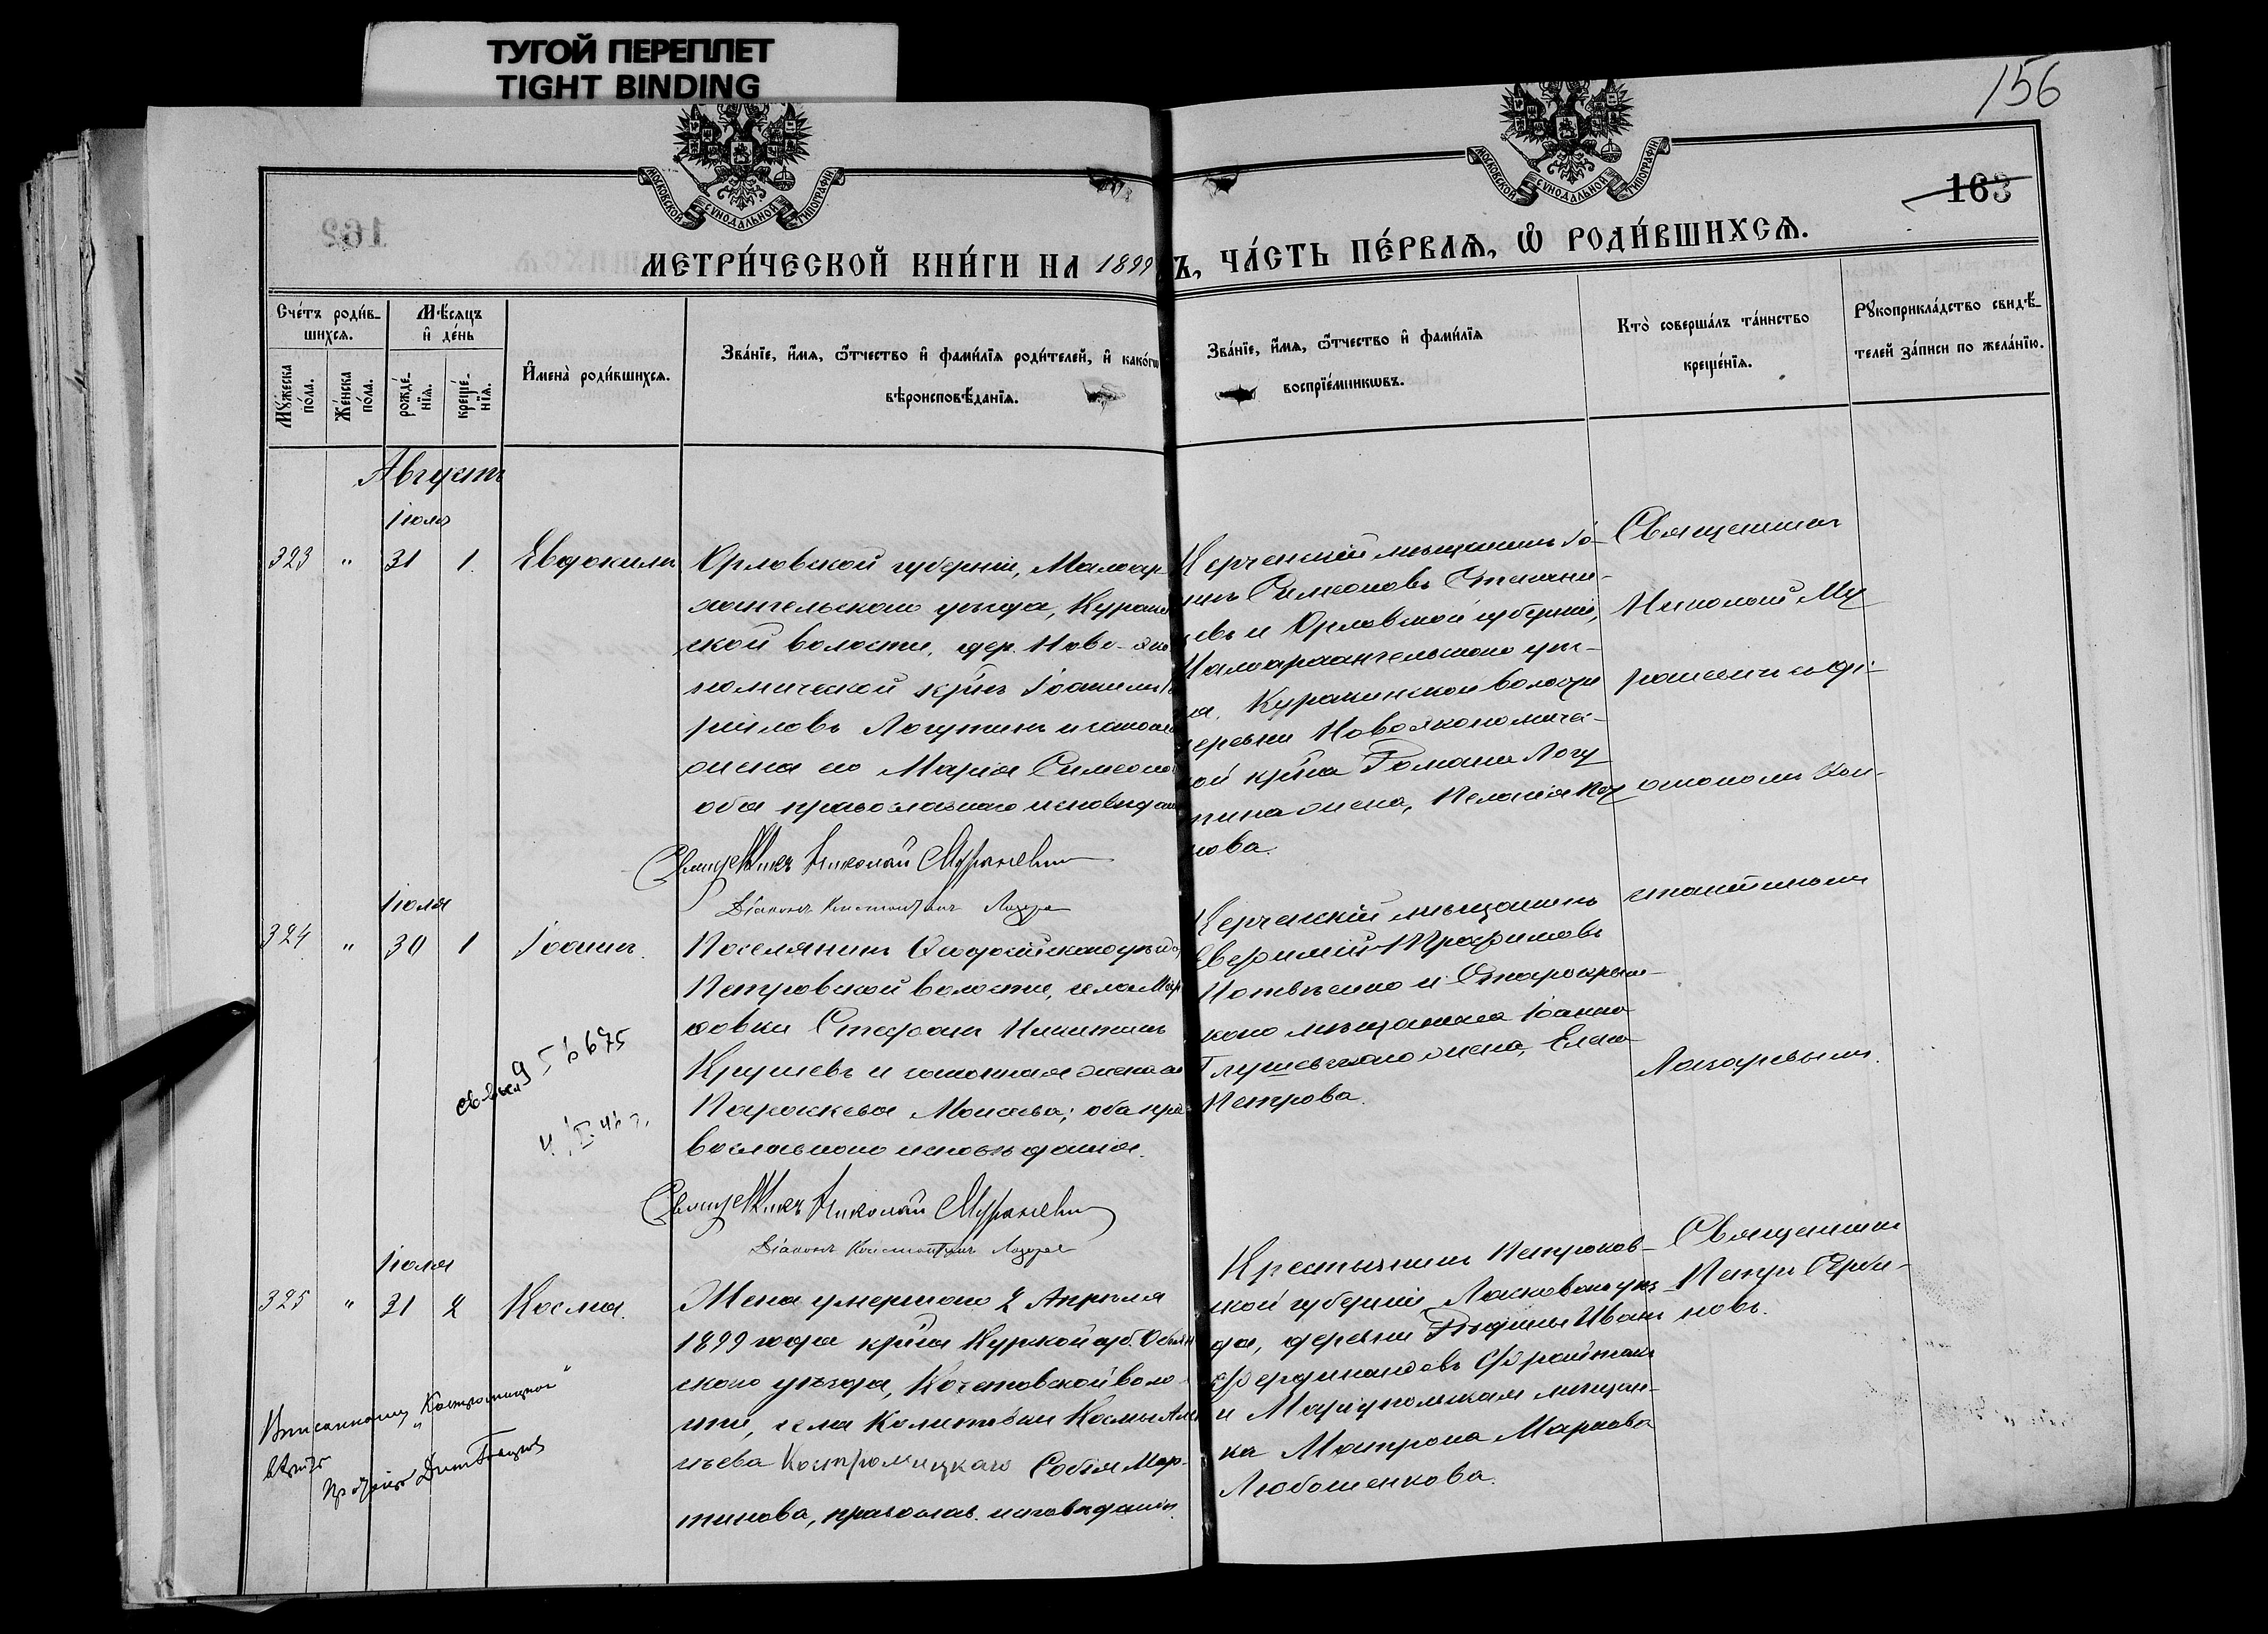 ТУГОЙ ПЕРЕПЛЕТ
TIGHT BINDING
156
163
162
МОСКОВСКОЙ СУНОДАЛЬНОЙ ТИПОГРАФІИ
МОСКОВСКОЙ СУНОДАЛЬНОЙ ТИПОГРАФІИ
МЕТРИ́ЧЕСКОЙ КНИ́ГИ НА 1899 Ъ, ЧА́СТЬ ПЕ́РВАѦ, Ѿ РОДИ́ВШИХСѦ.
Сче́тъ роди́в-
шихсѧ.
Мꙋ́жеска по́ла.
Же́нска по́ла.
Мѣ́сѧцъ
и҆ де́нь
рожде́-
нїѧ.
креще́-
нїѧ.
И҆мена̀ роди́вшихсѧ.
Зва́нїе, и҆́мѧ, ѻ҆́тчество и҆ фами́лїѧ роди́телей, и҆ како́гѡ
вѣроисповѣ́данїѧ.
Зва́нїе, и҆́мѧ, ѻ҆́тчество и҆ фами́лїѧ
воспрїе́мникѡвъ.
Кто̀ соверша́лъ та́инство
креще́нїѧ.
Рꙋкоприкла́дство свидѣ́-
телей за́писи по жела́нїю.
Августъ
Іюля
323 " 31 1. Евдокимъ
Орловской губерніи, Малоар-
хангельскаго уѣзда, Куракин
ской волости, дер. Ново-эко
номической кр-нъ Іоаннъ
риловъ Логутинъ и законная
жена его Марія Симеоно
оба православнаго исповѣдан
Священникъ Николай Мураневич
Діаконъ Константинъ Лазаре
Керченскій мѣщанинъ Іо-
Симеоновъ
евъ и Орловской губерніи,
Малоархангельскаго уѣз-
да, Куракинской волости
деревни Новоэкономиче-
ой кр-на Романа Логу
тина жена, Пелагія
нова.
Священникъ
Николай Му
раневичъ съ ді-
акономъ Кон-
стантиномъ
Лазаревымъ.
Іюля
324. " 30 1 Іоаннъ.
Поселянинъ Ѳеодосійскаго уѣзда,
Петровской волости, села Мар
фовки Стефанъ Никитинъ
Крушевъ и законная жена его
Параскева Моисеева; оба пра
вославнаго исповѣданія.
Священникъ Николай Мураневич
Діаконъ Константинъ Лазаре
Керченскій мѣщанинъ
Евфимій Трофимовъ
Потвѣенко и Старокрым-
скаго мѣщанина Іоанна
Глушевскаго жена, Елена
Петрова.
Іюля
325 " 31 2 Косма.
Жена умершаго 2 Апрѣля
1899 года кр-на Курской губ. Обоян
скаго уѣзда, Кочетовской воло
сти, села Калитвки Космы Але
ньева Костромицкаго Софія Мар-
тинова, православ. исповѣданія.
Крестьянинъ Петроков-
ской губерніи, Ласковскаго уѣз
да, деревни Рудины Иванъ
Фердинандовъ Фрайтакъ
и Маріупольская мѣщан-
ка Матрона Маркова
Любошенкова.
Священникъ
Петръ Серби-
новъ.